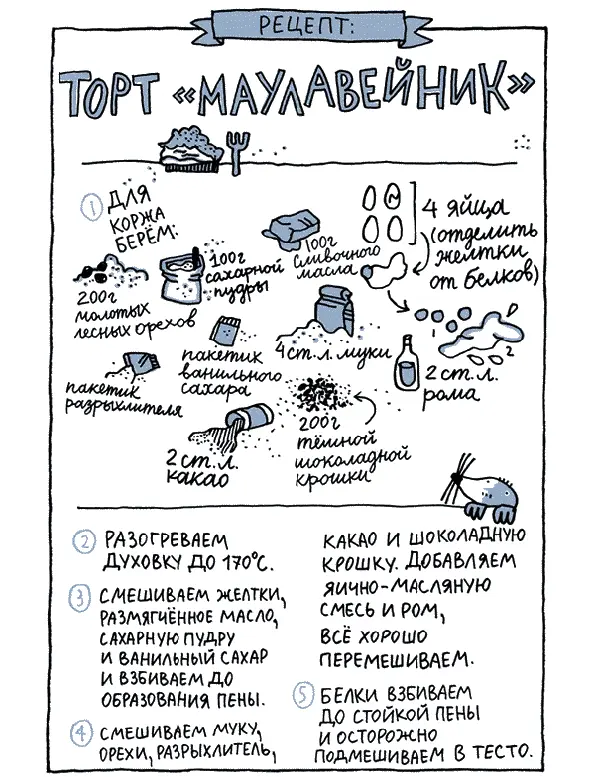 РЕЦЕПТ:
ТОРТ «МАУЛАВЕЙНИК»
1 ДЛЯ
КОРЖА
БЕРЁМ:
200г
молотых
лесных орехов
100г
сахарной
пудры
100г
сливочного
масла
4 яйца
(отделить
желтки
от белков)
1
2
пакетик
разрыхлителя
пакетик
ванильного
сахара
4 ст. л. муки
2 ст. л.
рома
2 ст. л.
какао
200г
тёмной
шоколадной
крошки
2 РАЗОГРЕВАЕМ
ДУХОВКУ ДО 170°С.
3 СМЕШИВАЕМ ЖЕЛТКИ,
РАЗМЯГЧЁННОЕ МАСЛО,
САХАРНУЮ ПУДРУ
И ВАНИЛЬНЫЙ САХАР
И ВЗБИВАЕМ ДО
ОБРАЗОВАНИЯ ПЕНЫ.
4 СМЕШИВАЕМ МУКУ,
ОРЕХИ, РАЗРЫХЛИТЕЛЬ,
КАКАО И ШОКОЛАДНУЮ
КРОШКУ. ДОБАВЛЯЕМ
ЯИЧНО-МАСЛЯНУЮ
СМЕСЬ И РОМ,
ВСЁ ХОРОШО
ПЕРЕМЕШИВАЕМ.
5 БЕЛКИ ВЗБИВАЕМ
ДО СТОЙКОЙ ПЕНЫ
И ОСТОРОЖНО
ПОДМЕШИВАЕМ В ТЕСТО.